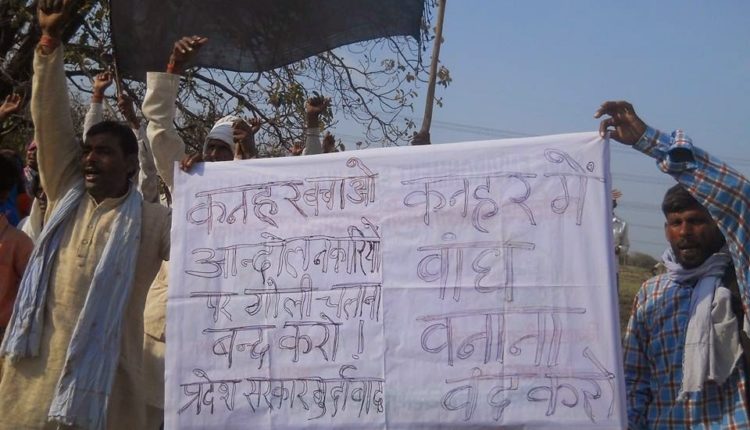 कनहर बचाओ
आन्दोलनकारियों
पर गोली चलाना
बन्द करो !
प्रदेश सरकार मुर्दावाद
कनहर में
वांध
वनाना
वंद करो